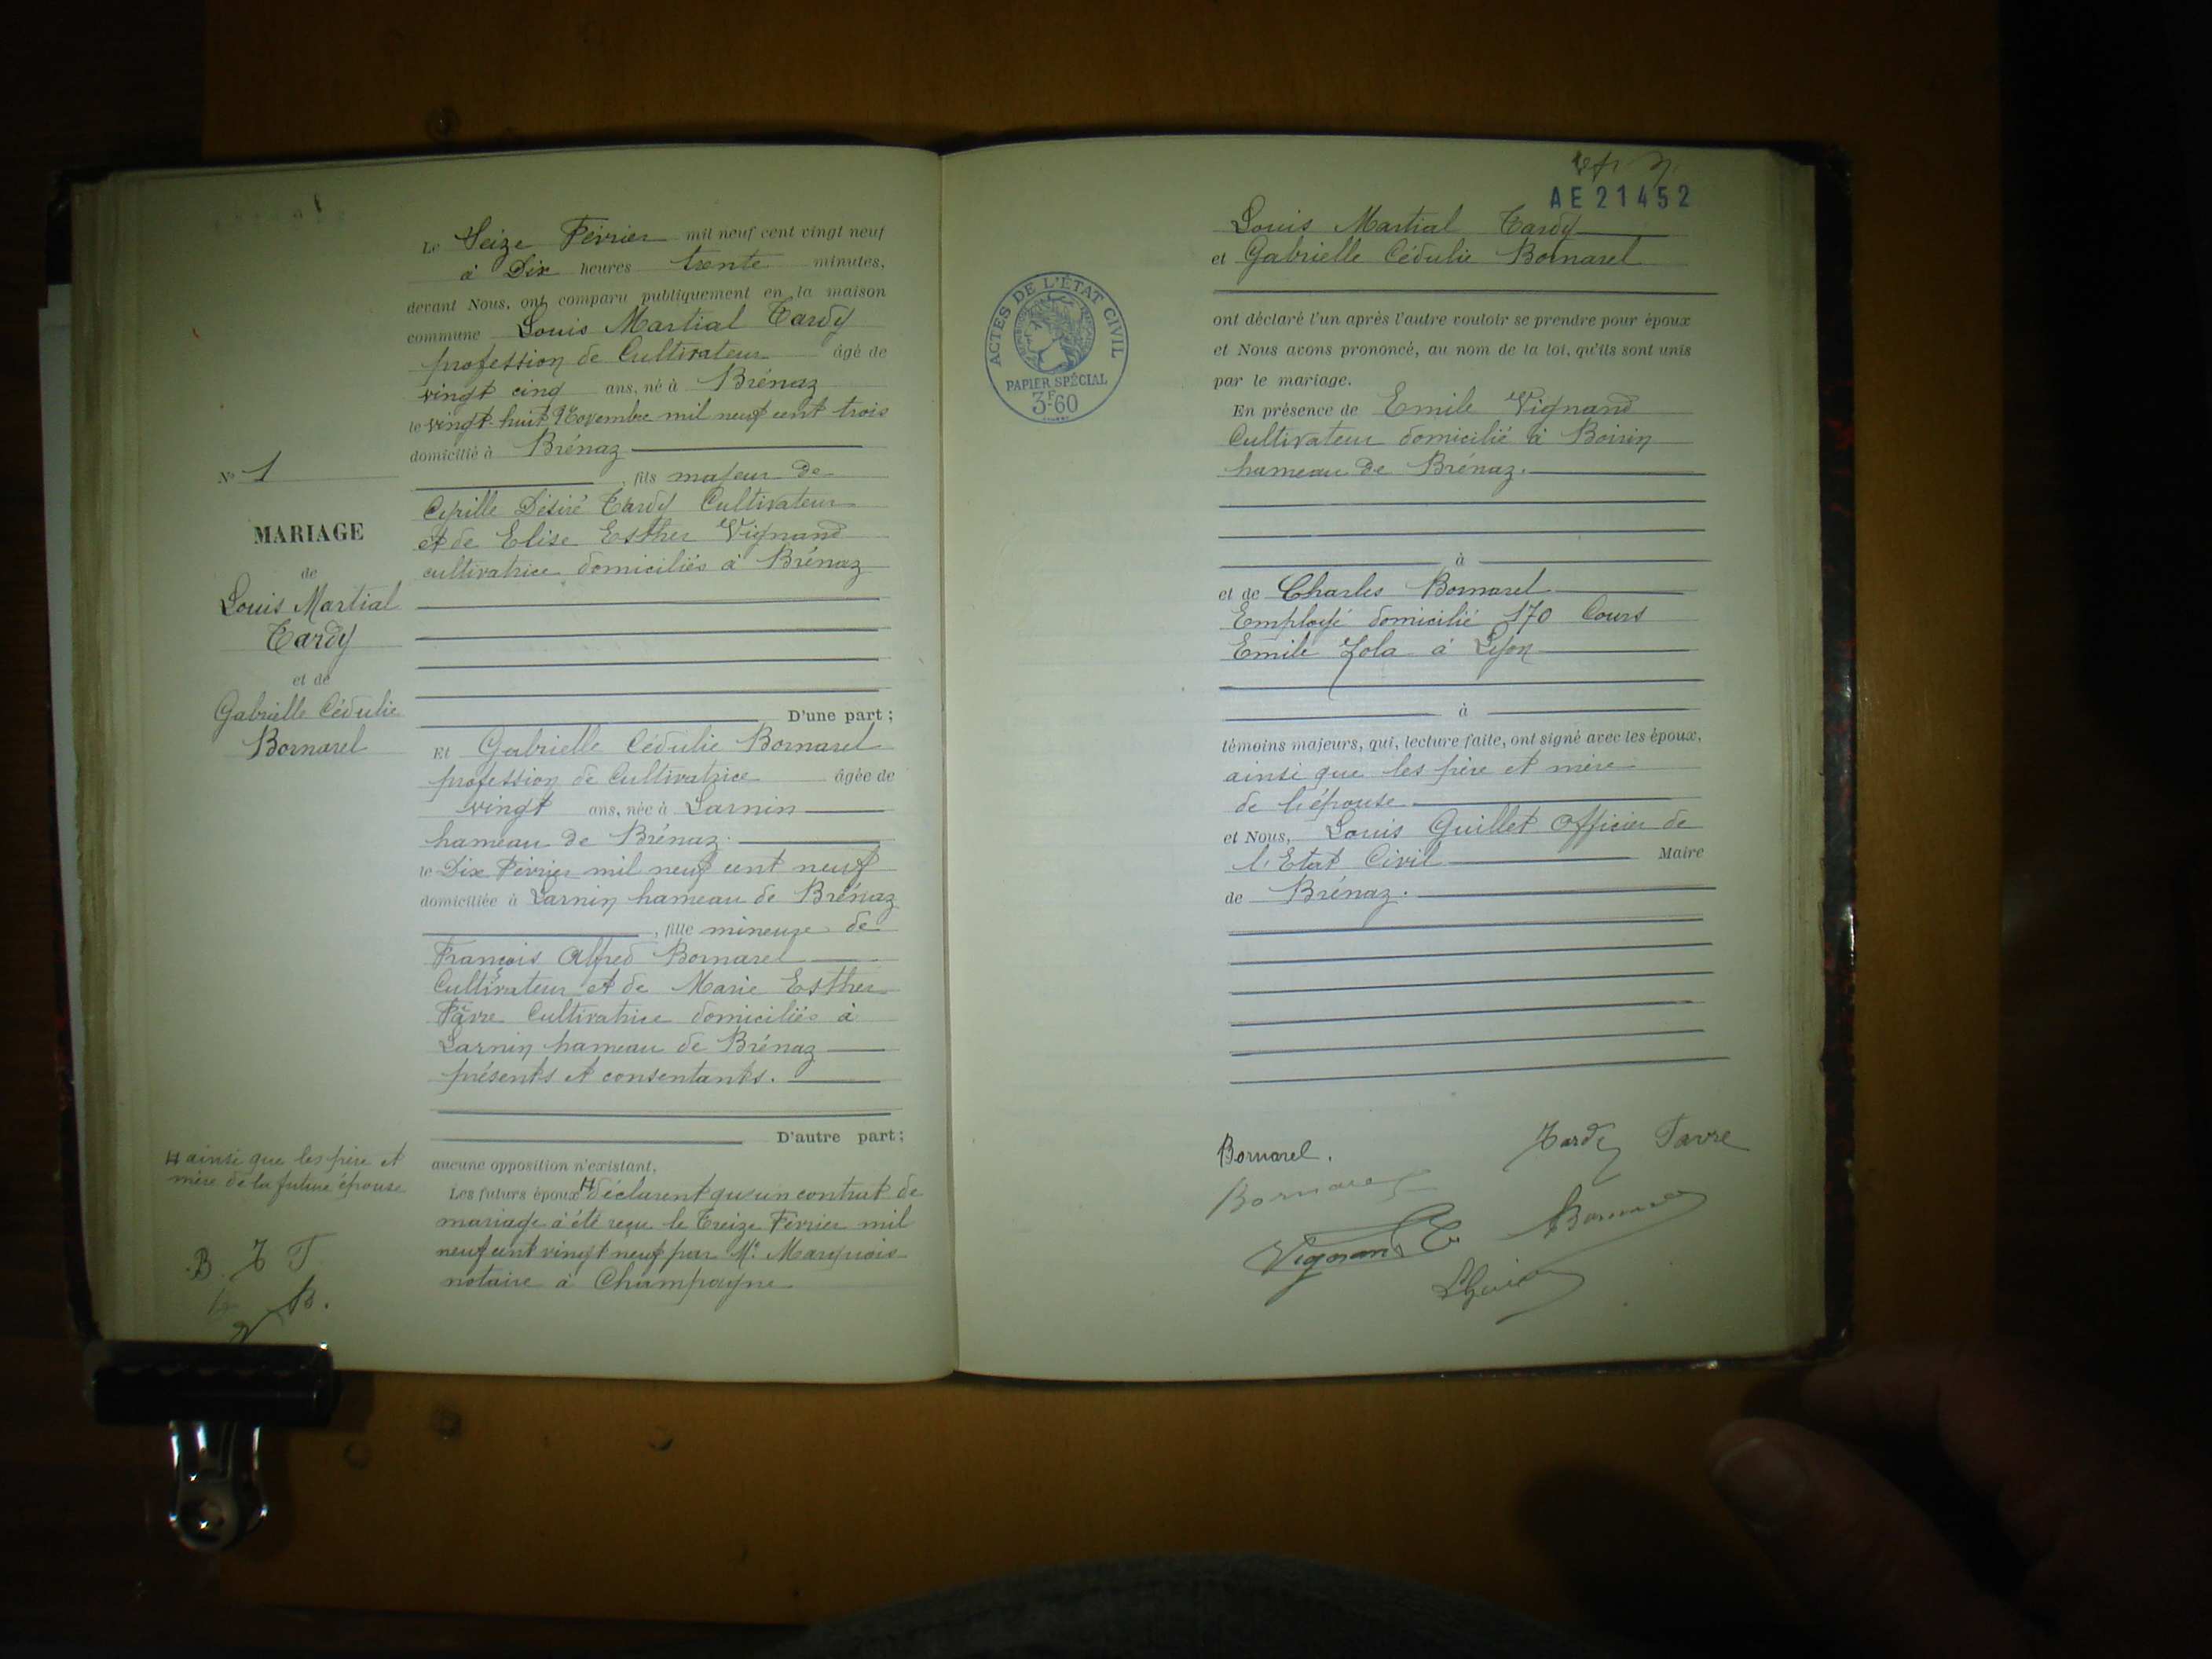 Le Seize Février mil neuf cent vingt neuf
à Dix heures trente minutes,
devant Nous, ont comparu publiquement en la maison
commune Louis Martial Tardy
profession de Cultivateur âgé de
vingt cinq ans, né à Brénaz
le vingt-huit Novembre mil neuf cent trois
domicilié à Brénaz
, fils majeur de
Cyrille Désiré Tardy Cultivateur
et de Elise Esther Vignand
cultivatrice domiciliés à Brénaz
D'une part ;
Et Gabrielle Cédulie Bornarel
profession de Cultivatrice âgée de
vingt ans, née à Larnin
hameau de Brénaz.
le Dix Février mil neuf cent neuf
domiciliée à Larnin hameau de Brénaz
, fille mineure de
François Alfred Bornarel
Cultivateur et de Marie Esther
Favre Cultivatrice domiciliés à
Larnin hameau de Brénaz
présents et consentants.
D'autre part ;
aucune opposition n'existant,
Les futurs époux # déclarent qu'un contrat de
mariage à été reçu le Treize Février mil
neuf cent vingt neuf par Me Marquois
notaire à Champagne
N° 1
MARIAGE
de
Louis Martial
Tardy
et de
Gabrielle Cédulie
Bornarel
# ainsi que les père et
mère de la future épouse
B. T F
B.
AE 21452
Louis Martial Tardy
et Gabrielle Cédulie Bornarel
ACTES DE L'ÉTAT CIVIL
PAPIER SPÉCIAL
3F60
ont déclaré l'un après l'autre vouloir se prendre pour époux
et Nous avons prononcé, au nom de la loi, qu'ils sont unis
par le mariage.
En présence de Emile Vignand
Cultivateur domicilié à Boirin
hameau de Brénaz.
à
et de Charles Bornarel
Employé domicilié 170 Cours
Emile Zola à Lyon
à
témoins majeurs, qui, lecture faite, ont signé avec les époux,
ainsi que les père et mère
de l'épouse
et Nous, Louis Guillet Officier de
l'Etat Civil Maire
de Brénaz.
Bornarel. Tardy Favre
Bornarel
Vignand E Bornarel
LGuillet